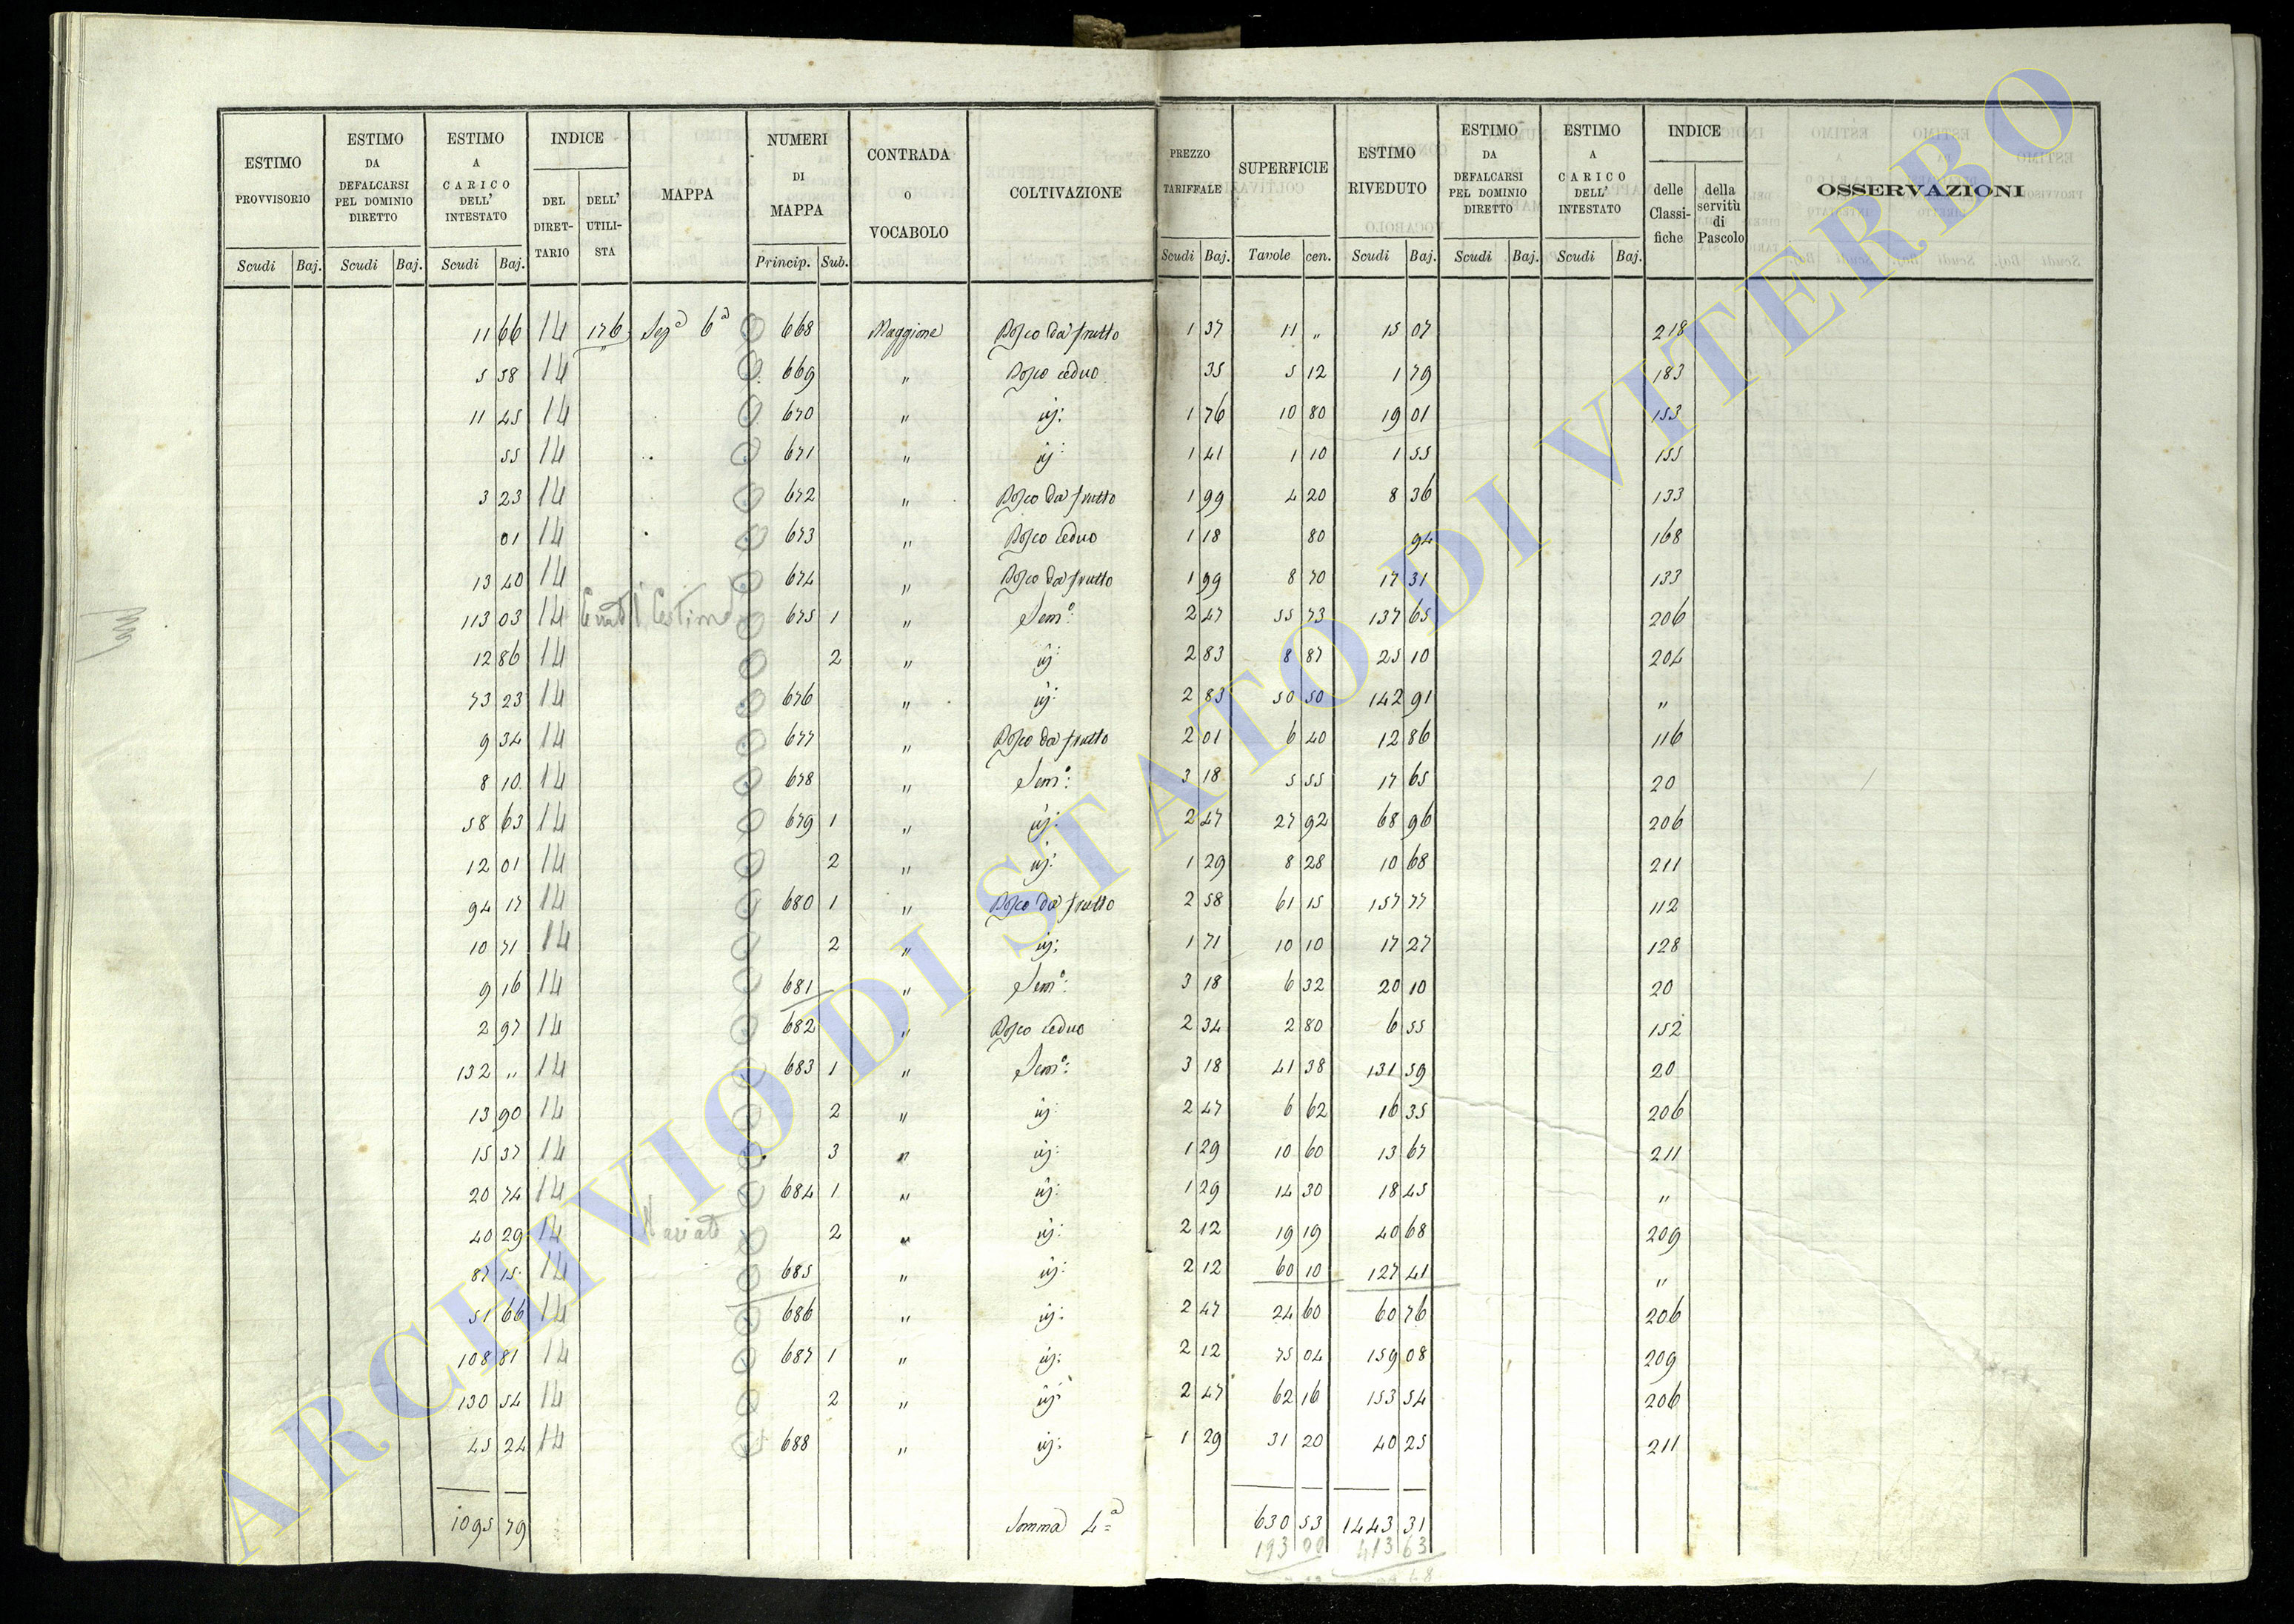 ESTIMO PROVVISORIO | ESTIMO DA DEFALCARSI PEL DOMINIO DIRETTO | ESTIMO A CARICO DELL' INTESTATO | INDICE DEL DIRET-TARIO | DELL' UTILI-STA | MAPPA | NUMERI DI MAPPA | CONTRADA O VOCABOLO | COLTIVAZIONE | PREZZO TARIFFALE | SUPERFICIE | ESTIMO RIVEDUTO | ESTIMO DA DEFALCARSI PEL DOMINIO DIRETTO | ESTIMO A CARICO DELL' INTESTATO | INDICE delle Classi-fiche | della servitù di Pascolo | OSSERVAZIONI
Scudi Baj. | Scudi Baj. | Scudi Baj. | Princip. Sub. | Scudi Baj. | Tavole cen. | Scudi Baj. | Scudi Baj. | Scudi Baj.
11 66 14 176 Sez.ª 6ª 668 Maggione Bosco da frutto 1 37 11 " 15 07 218
5 58 14 669 " Bosco ceduo 35 5 12 1 79 183
11 45 14 670 " id: 1 76 10 80 19 01 153
55 14 671 " id: 1 41 1 10 1 55 155
3 23 14 672 " Bosco da frutto 1 99 4 20 8 36 133
01 14 673 " Bosco ceduo 1 18 80 94 168
13 40 14 674 " Bosco da frutto 1 99 8 70 17 31 133
113 03 14 675 1 " Sem.º: 2 47 55 73 137 65 206
12 86 14 2 " id: 2 83 8 87 25 10 204
73 23 14 676 " id: 2 83 50 50 142 91 "
9 34 14 677 " Bosco da frutto 2 01 6 40 12 86 116
8 10 14 678 " Sem.º: 3 18 5 55 17 65 20
58 63 14 679 1 " id: 2 47 27 92 68 96 206
12 01 14 2 " id: 1 29 8 28 10 68 211
94 17 14 680 1 " Bosco da frutto 2 58 61 15 157 77 112
10 71 14 2 " id: 1 71 10 10 17 27 128
9 16 14 681 " Sem.º: 3 18 6 32 20 10 20
2 97 14 682 " Bosco ceduo 2 34 2 80 6 55 152
132 " 14 683 1 " Sem.º: 3 18 41 38 131 59 20
13 90 14 2 " id: 2 47 6 62 16 35 206
15 37 14 3 " id: 1 29 10 60 13 67 211
20 74 14 684 1 " id: 1 29 14 30 18 45 "
40 29 14 2 " id: 2 12 19 19 40 68 209
87 15 14 685 " id: 2 12 60 10 127 41 "
51 66 14 686 " id: 2 47 24 60 60 76 206
108 81 14 687 1 " id: 2 12 75 04 159 08 209
130 54 14 2 " id: 2 47 62 16 153 54 206
45 24 14 688 " id: 1 29 31 20 40 25 211
1095 79 Somma 4ª 630 53 1443 31
413 63
ARCHIVIO DI STATO DI VITERBO